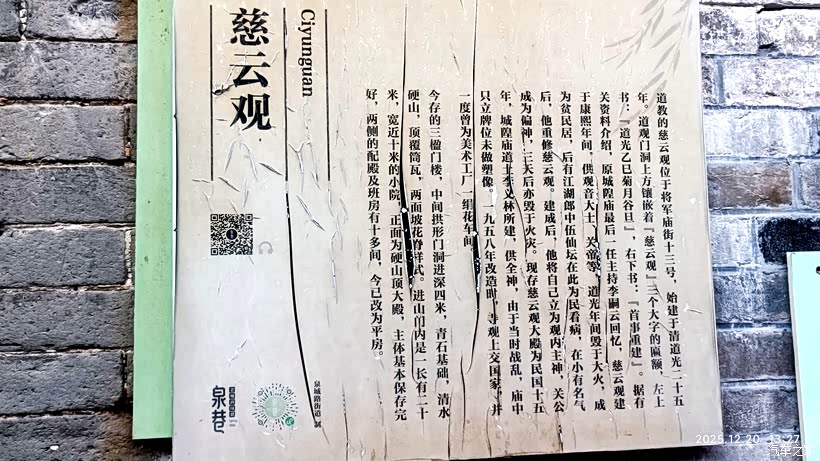 慈云观
Ciyunguan
道教的慈云观位于将军庙街十三号，始建于清道光二十五
年。道观门洞上方镶嵌着『慈云观』三个大字的匾额，左上
书：『道光乙巳菊月谷旦』，右下书：『首事重建』。据有
关资料介绍，原城隍庙最后一任主持李嗣云回忆，慈云观建
于康熙年间，供观音大士、关帝等，道光年间毁于大火，成
为贫民居，后有江湖郎中伍仙坛在此为民看病，在小有名气
后，他重修慈云观。建成后，他将自己立为观内主神，关公
成为偏神，三天后亦毁于火灾。现存慈云观大殿为民国十五
年，城隍庙道士李义林所建，供全神，由于当时战乱，庙中
只立牌位未做塑像。一九五八年改造时，寺观上交国家，并
一度曾为美术工厂绢花车间。
今存的三楹门楼，中间拱形门洞进深四米，青石基础，清水
硬山，顶覆筒瓦，两面坡花脊样式。进山门内是一长有二十
米，宽近十米的小院，正面为硬山顶大殿，主体基本保存完
好，两侧的配殿及班房有十多间，今已改为平房。
泉城路街道 制
泉巷
2025.12.20 13:27
汽车之